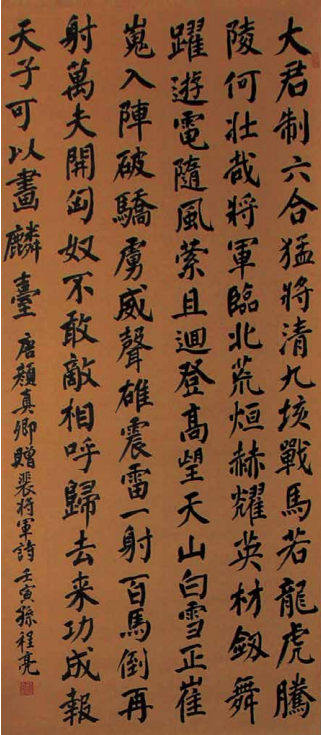 大君制六合猛將清九垓戰馬若龍虎騰
陵何壯哉將軍臨北荒烜赫耀英材劔舞
躍遊電隨風縈且迴登高望天山白雪正崔
嵬入陣破驕虜威聲雄震雷一射百馬倒再
射萬夫開匈奴不敢敵相呼歸去来功成報
天子可以畫麟臺 唐顏真卿贈裴將軍詩 壬寅孫程亮